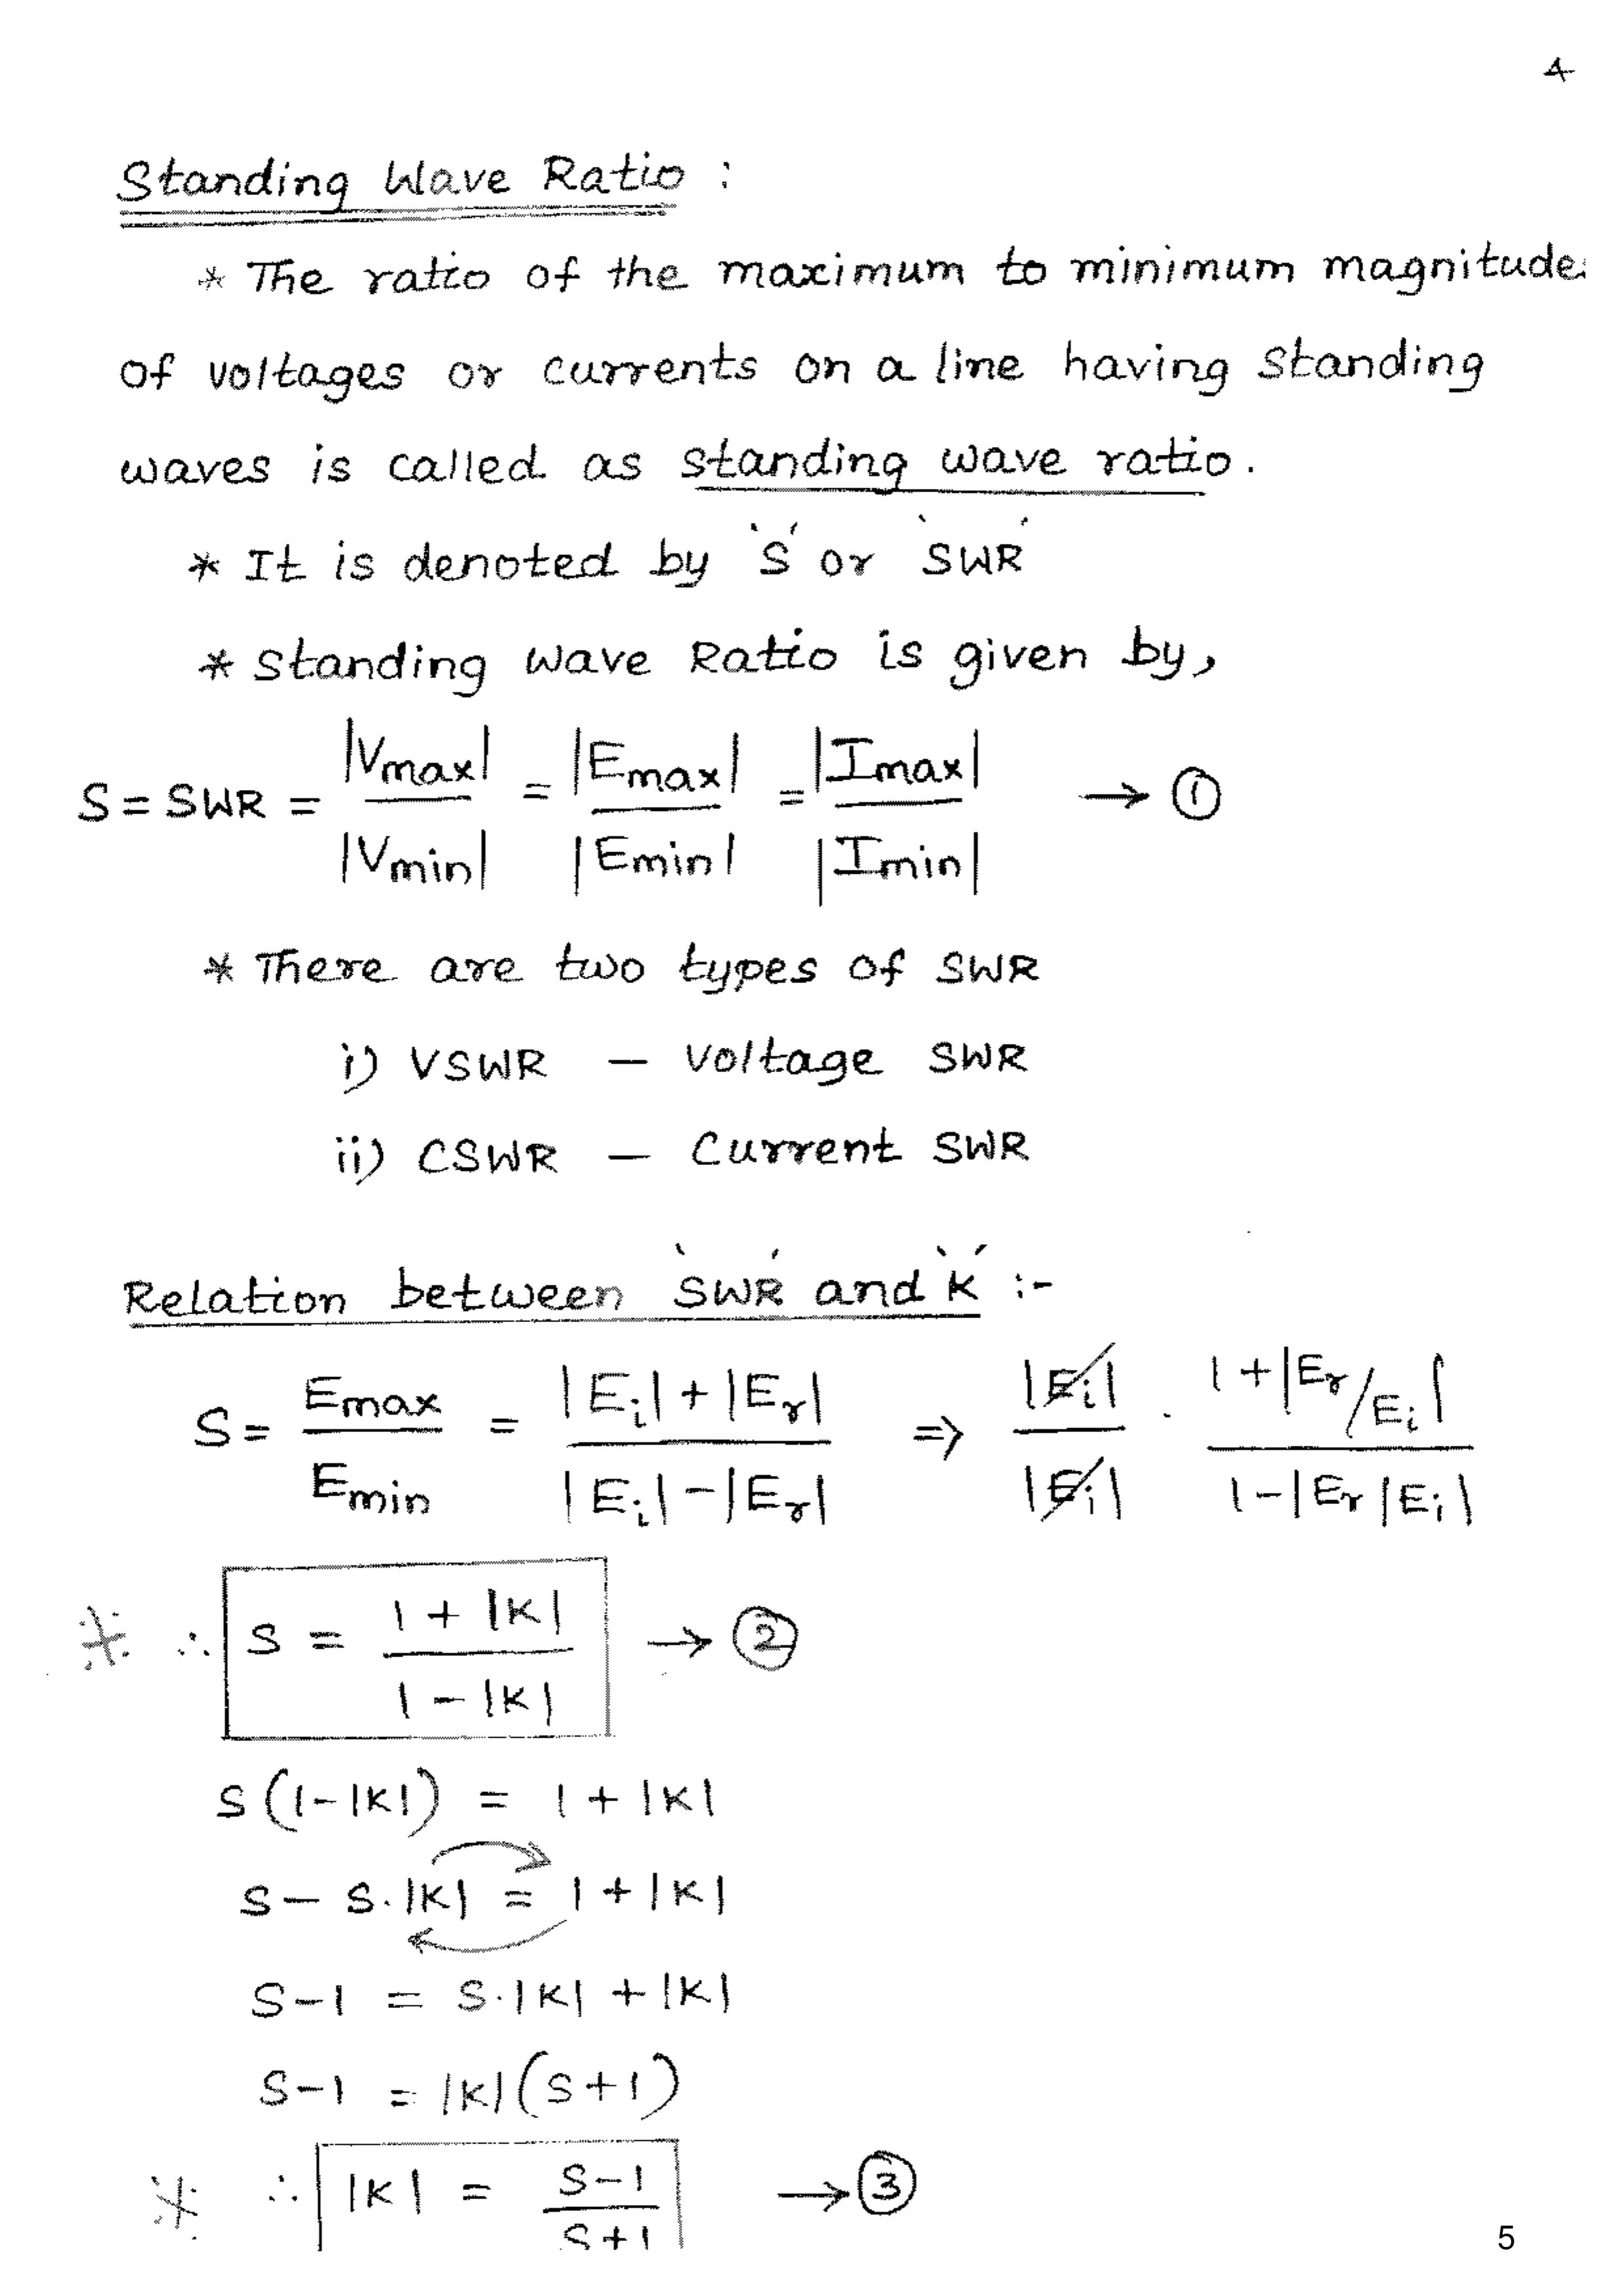 4
Standing Wave Ratio :
* The ratio of the maximum to minimum magnitude
of voltages or currents on a line having standing
waves is called as standing wave ratio.
* It is denoted by 'S' or 'SWR'
* Standing Wave Ratio is given by,
S = SWR = |Vmax| / |Vmin| = |Emax| / |Emin| = |Imax| / |Imin| → ①
* There are two types of SWR
i) VSWR – Voltage SWR
ii) CSWR – Current SWR
Relation between 'SWR' and 'K' :-
S = Emax / Emin = |Ei| + |Er| / |Ei| - |Er| ⇒ |Ei| / |Ei| . 1 + |Er/Ei| / 1 - |Er|Ei|
* ∴ S = 1 + |K| / 1 - |K| → ②
S (1 - |K|) = 1 + |K|
S - S.|K| = 1 + |K|
S - 1 = S.|K| + |K|
S - 1 = |K| (S + 1)
* ∴ |K| = S - 1 / S + 1 → ③
5